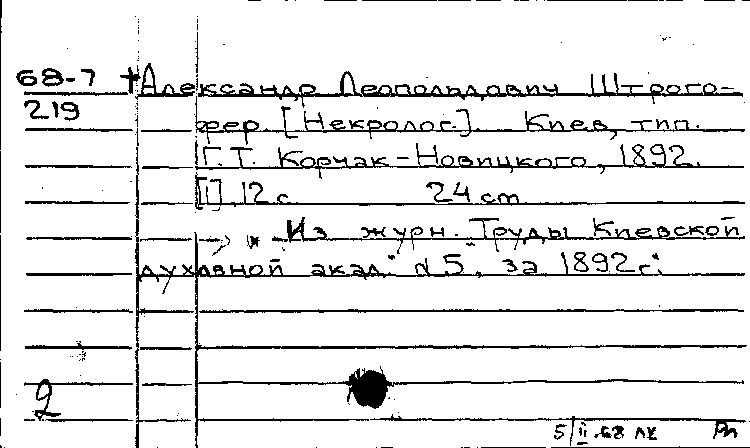 68-7 † Александр Леопольдович Штрого-
219 фер. [Некролог.]. Киев, тип.
Г. Т. Корчак-Новицкого, 1892.
[1], 12 с. 24 cm
Из журн. "Труды Киевской
духовной акад." 5, за 1892 г.
2
5/II.68